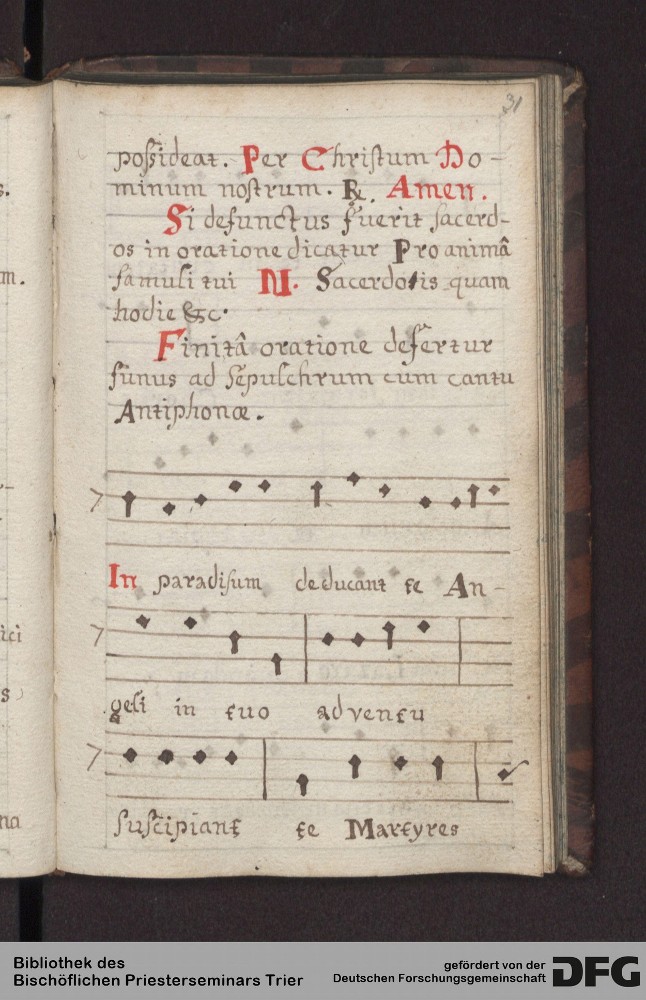 31
possideat. Per Christum Do-
minum nostrum. ℟. Amen.
Si defunctus fuerit sacerd-
os in oratione dicatur Pro animâ
famuli tui N. Sacerdotis quam
hodie &c.
Finitâ oratione defertur
funus ad sepulchrum cum cantu
Antiphonæ.
In paradisum deducant te An-
geli in tuo adventu
suscipiant te Martyres
s.
m.
ici
s
na
Bibliothek des
Bischöflichen Priesterseminars Trier
gefördert von der
Deutschen Forschungsgemeinschaft
DFG